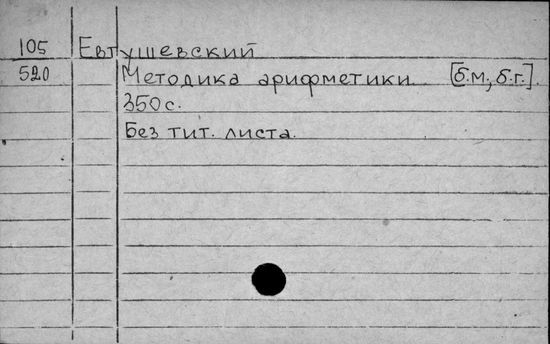 105 Евтушевский
520 Методика арифметики [б.м., б.г.].
350 с.
Без тит. листа.